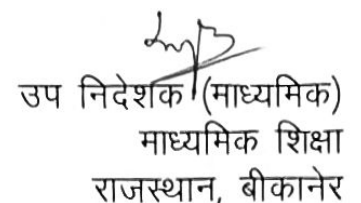 उप निदेशक (माध्यमिक)
माध्यमिक शिक्षा
राजस्थान, बीकानेर